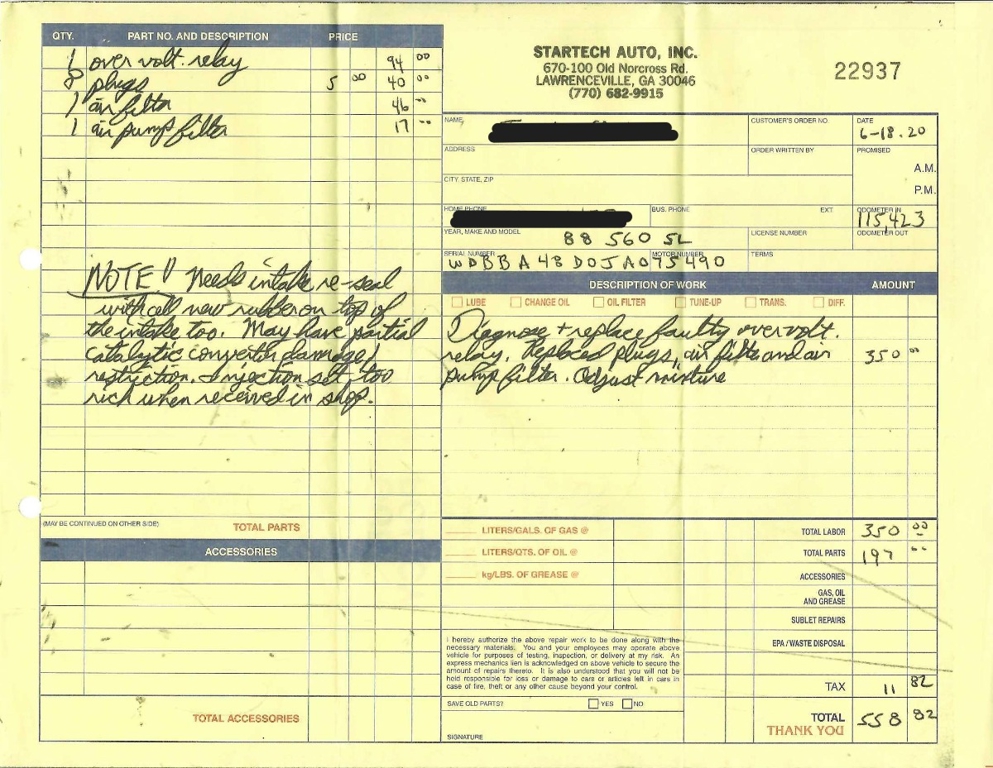 QTY. PART NO. AND DESCRIPTION PRICE
1 over volt. relay 94 00
8 plugs 5 00 40 00
1 air filter 46 --
1 air pump filter 17 --
NOTE!! Needs intake re-seal
with all new rubber on top of
the intake too. May have partial
catalytic convertor damage/
restriction. Injection set too
rich when received in shop.
(MAY BE CONTINUED ON OTHER SIDE) TOTAL PARTS
ACCESSORIES
TOTAL ACCESSORIES
STARTECH AUTO, INC.
670-100 Old Norcross Rd.
LAWRENCEVILLE, GA 30046
(770) 682-9915
22937
NAME CUSTOMER'S ORDER NO. DATE
6-18-20
ADDRESS ORDER WRITTEN BY PROMISED
A.M.
CITY, STATE, ZIP
P.M.
HOME PHONE BUS. PHONE EXT. ODOMETER IN
115,423
YEAR, MAKE AND MODEL LICENSE NUMBER ODOMETER OUT
88 560 SL
SERIAL NUMBER MOTOR NUMBER TERMS
WDBBA48D0JA075490
DESCRIPTION OF WORK AMOUNT
LUBE CHANGE OIL OIL FILTER TUNE-UP TRANS. DIFF.
Diagnose + replace faulty over volt.
relay. Replaced plugs, air filte and air 350 00
pump filter. Adjust mixture
LITERS/GALS. OF GAS @ TOTAL LABOR 350 00
LITERS/QTS. OF OIL @ TOTAL PARTS 197 --
kg/LBS. OF GREASE @ ACCESSORIES
GAS, OIL
AND GREASE
SUBLET REPAIRS
EPA / WASTE DISPOSAL
I hereby authorize the above repair work to be done along with the
necessary materials. You and your employees may operate above
vehicle for purposes of testing, inspection, or delivery at my risk. An
express mechanics lien is acknowledged on above vehicle to secure the
amount of repairs thereto. It is also understood that you will not be
held responsible for loss or damage to cars or articles left in cars in
case of fire, theft or any other cause beyond your control.
TAX 11 82
SAVE OLD PARTS? YES NO
TOTAL 558 82
THANK YOU
SIGNATURE